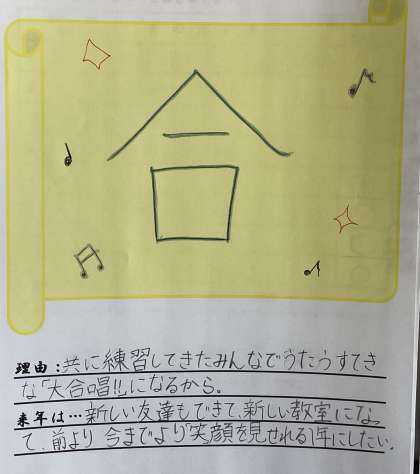 合
理由:共に練習してきたみんなでうたうすてき
な「大合唱!!」になるから。
来年は…新しい友達もできて、新しい教室になっ
て、前より今までより笑顔を見せれる1年にしたい。